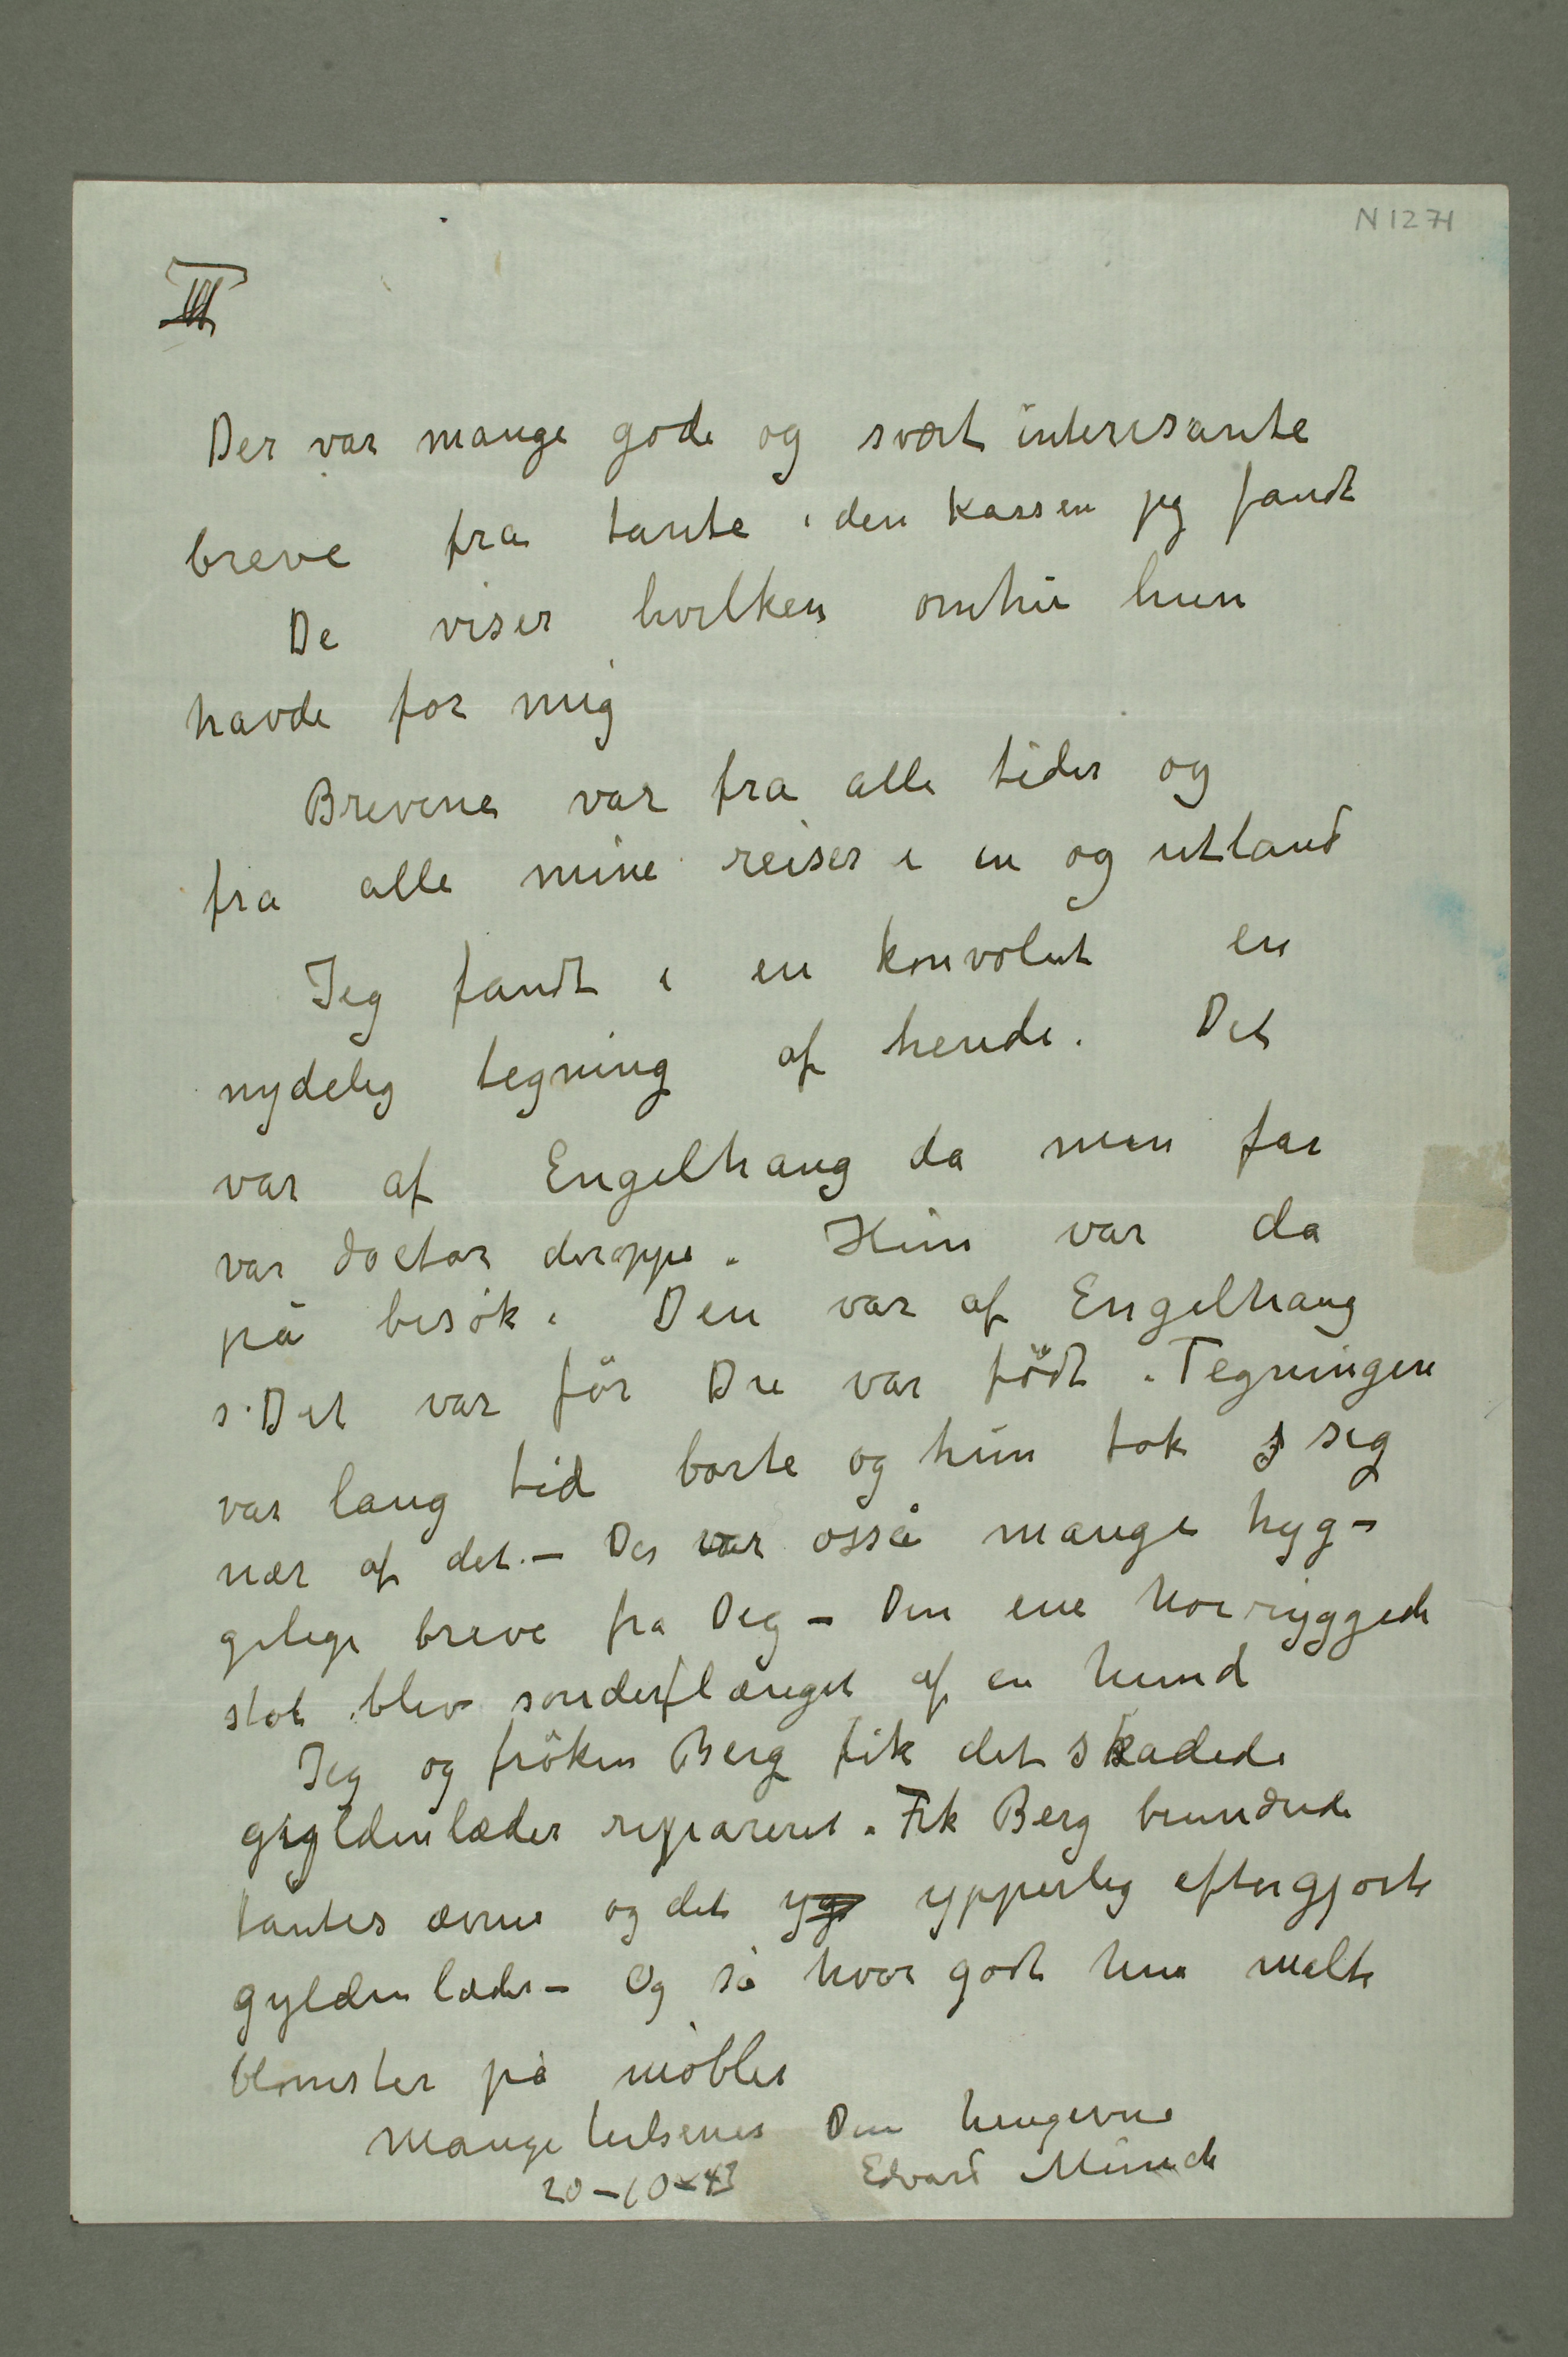 N 1271
III
Der var mange gode og svært interesante
breve fra tante i den kassen jeg fandt
De viser hvilken omhu hun
havde for mig
Brevene var fra alle tider og
fra alle mine reiser i in og utland
Jeg fandt i en konvolut en
nydelig tegning af hende. Det
var af Engelhaug da min far
var doctor deroppe. Hun var da
på besøk. Den var af Engelhaug
s. Det var før Du var født. Tegningen
var lang tid borte og hun tok sig
nær af det. – Der var osså mange hyg-
gelige breve fra Deg – Den ene høiryggede
stol blev sønderflænget af en hund
Jeg og frøken Berg fik det skadede
gyldenlæder repareret. Frk Berg beundrede
tantes ævne og det yge ypperlig eftergjorte
gyldenlæder – Og så hvor godt hun malte
blomster på møbler
Mange hilsener Din hengivne
20–10–43 Edvard Munch